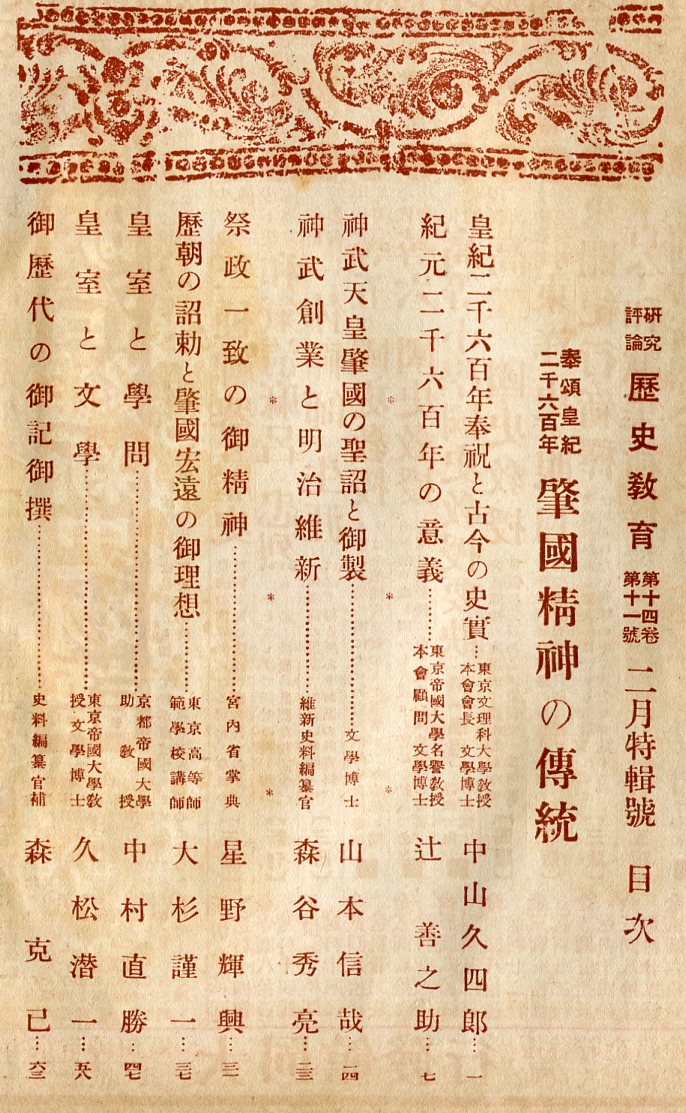 研究評論 歷史教育 第十四卷第十一號 二月特輯號 目次
奉頌皇紀二千六百年 肇國精神の傳統
皇紀二千六百年奉祝と古今の史實…東京文理科大學教授本會會長 文學博士 中山久四郎…一
紀元二千六百年の意義…東京帝國大學名譽教授本會顧問 文學博士 辻善之助…七
* * *
神武天皇肇國の聖詔と御製…文學博士 山本信哉…一四
神武創業と明治維新…維新史料編纂官 森谷秀亮…二三
* * *
祭政一致の御精神…宮內省掌典 星野輝興…三一
歷朝の詔勅と肇國宏遠の御理想…東京高等師範學校講師 大杉謹一…三七
皇室と學問…京都帝國大學助教授 中村直勝…四七
皇室と文學…東京帝國大學敎授文學博士 久松潛一…五八
御歷代の御記御撰…史料編纂官補 森克己…六三